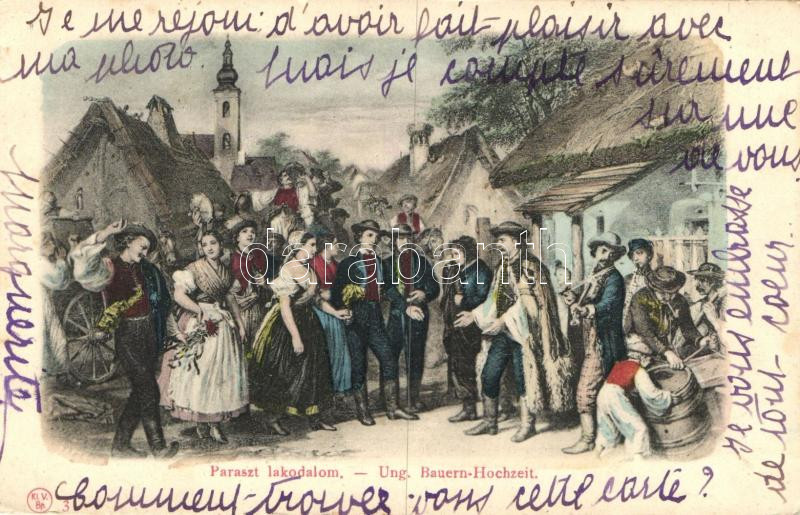 Je me réjoui d'avoir fait plaisir avec
ma photo. Mais je compte sûrement
sur une
de vous
Je vous embrasse
de tout-coeur.
Marguerite
darabanth
Paraszt lakodalom. — Ung. Bauern-Hochzeit.
Kl. V.
Bp.
3
Comment-trouvez-vous cette carte?